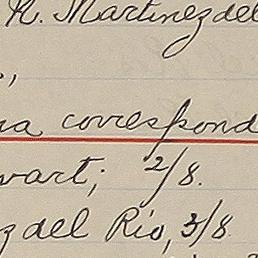 R. Martinez del
"
ia correspond
wart; 2/8.
z del Rio, 3/8